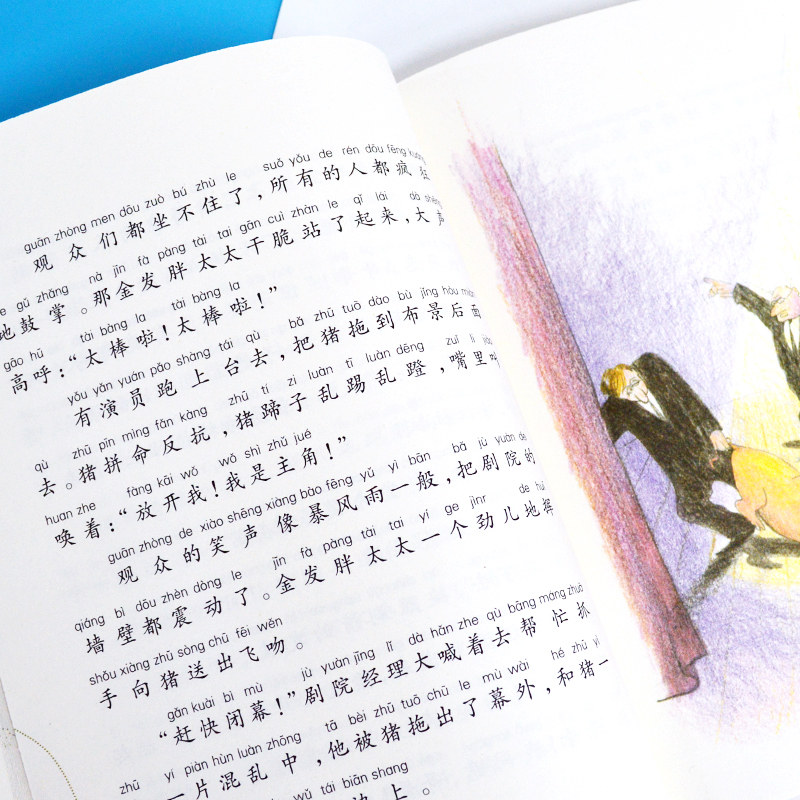 guān zhòng men dōu zuò bú zhù le suǒ yǒu de rén dōu fēng kuáng
观众们都坐不住了，所有的人都疯狂
gǔ zhǎng nà jīn fà pàng tài tai gān cuì zhàn le qǐ lái dà shēng
地鼓掌。那金发胖太太干脆站了起来，大声
gāo hū tài bàng la tài bàng la
高呼：“太棒啦！太棒啦！”
yǒu yǎn yuán pǎo shàng tái qù bǎ zhū tuō dào bù jǐng hòu miàn
有演员跑上台去，把猪拖到布景后面
qù zhū pīn mìng fǎn kàng zhū tí zi luàn tī luàn dēng zuǐ li
去。猪拼命反抗，猪蹄子乱踢乱蹬，嘴里
huàn zhe fàng kāi wǒ wǒ shì zhǔ jué
唤着：“放开我！我是主角！”
guān zhòng de xiào shēng xiàng bào fēng yǔ yì bān bǎ jù yuàn de
观众的笑声像暴风雨一般，把剧院的
qiáng bì dōu zhèn dòng le jīn fà pàng tài tai yí ge jìnr de huī
墙壁都震动了。金发胖太太一个劲儿地挥
shǒu xiàng zhū sòng chū fēi wěn
手向猪送出飞吻。
gǎn kuài bì mù jù yuàn jīng lǐ dà hǎn zhe qù bāng máng zhuō
“赶快闭幕！”剧院经理大喊着去帮忙抓
zhū yí piàn hùn luàn zhōng tā bèi zhū tuō chū le mù wài hé zhū yì
一片混乱中，他被猪拖出了幕外，和猪一
wǔ tái biān shang
边上。